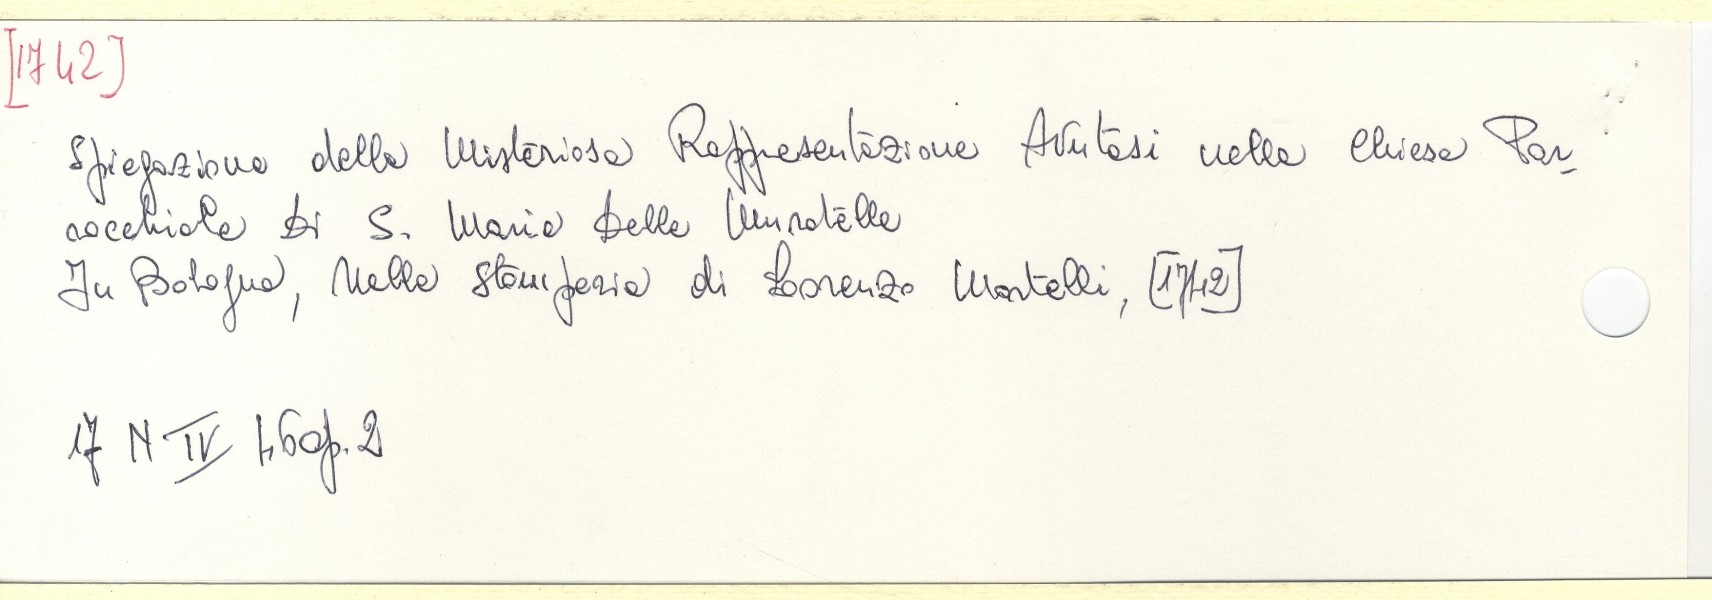 [1742]
Spiegazione della Misteriosa Rappresentazione Avutasi nella Chiesa Par-
rocchiale Di S. Maria Delle Muratelle
In Bologna, Nella Stamperia di Lorenzo Martelli, [1742]
17 N IV 46 op. 2